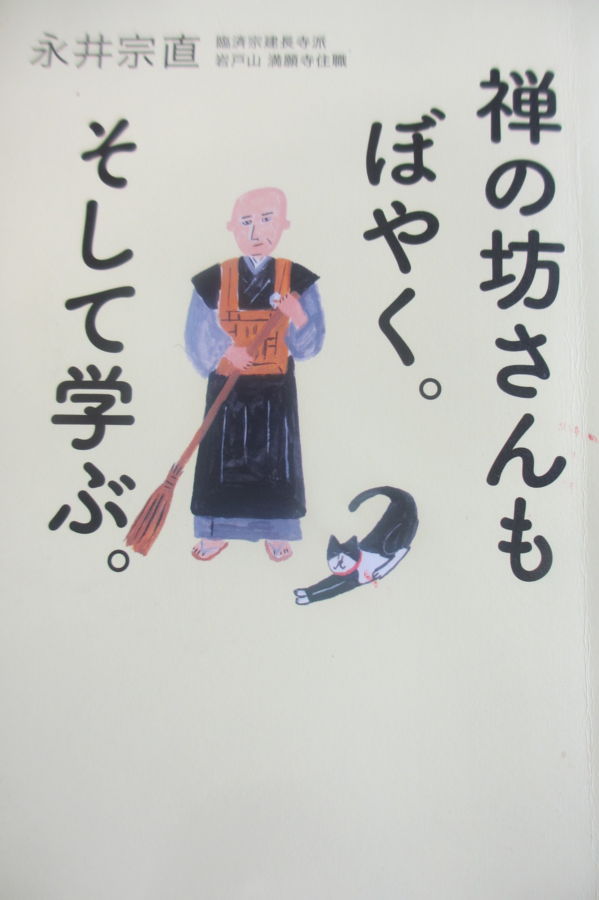 永井宗直
臨済宗建長寺派
岩戸山 満願寺住職
禅の坊さんも
ぼやく。
そして学ぶ。